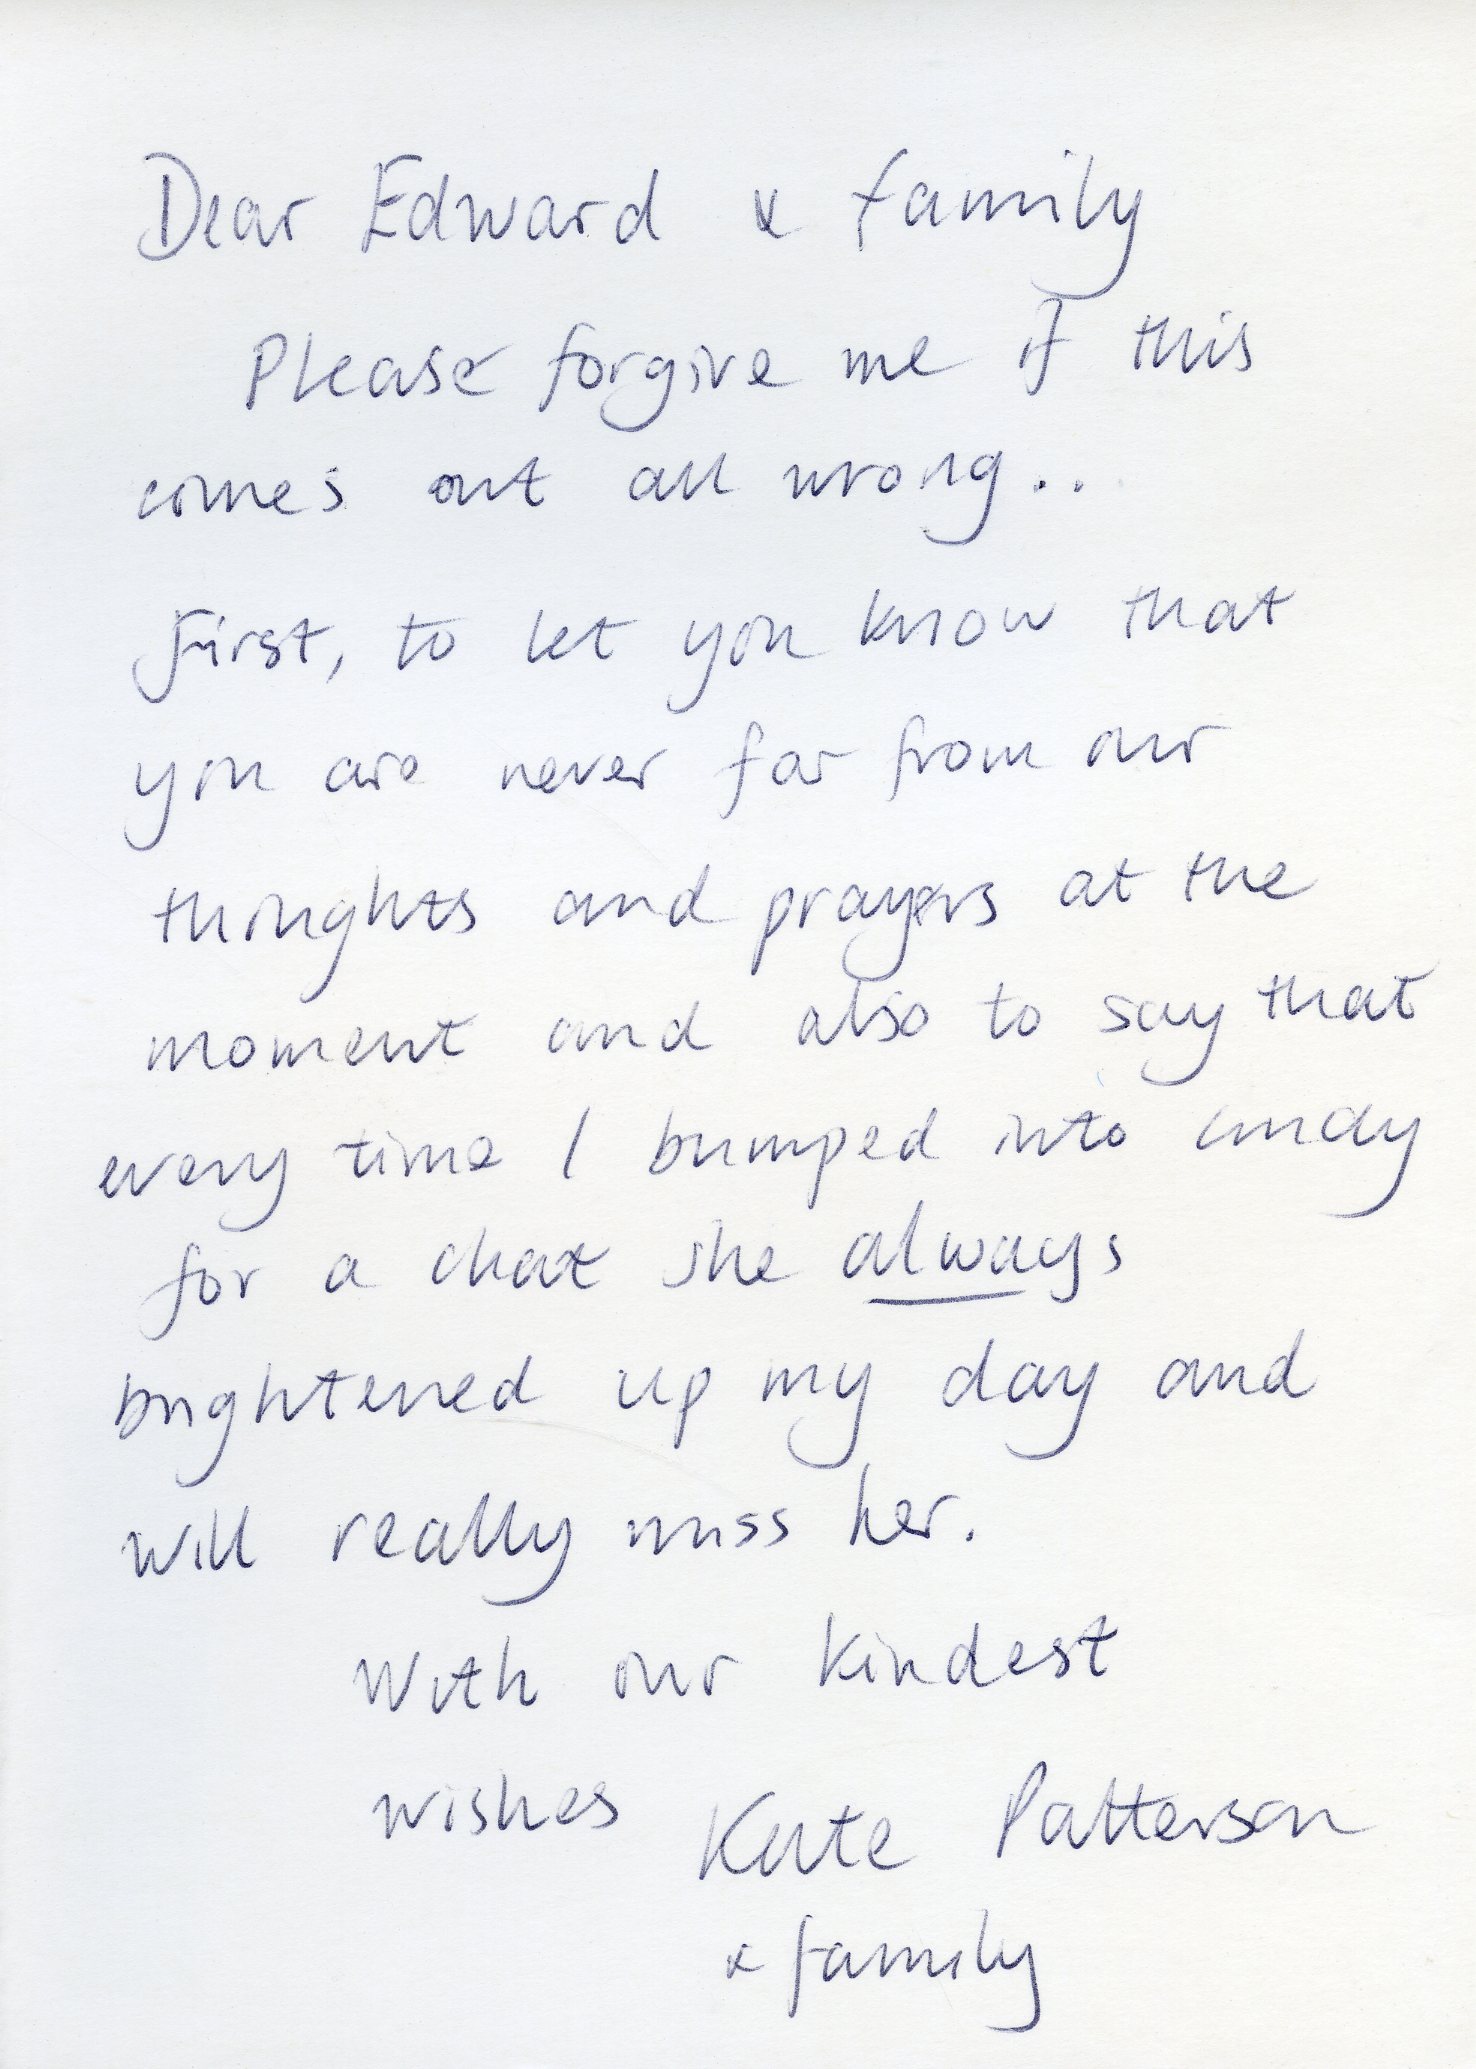 Dear Edward & family
Please forgive me if this
comes out all wrong...
First, to let you know that
you are never far from our
thoughts and prayers at the
moment and also to say that
every time I bumped into Cindy
for a chat she always
brightened up my day and
will really miss her.
With our kindest
wishes Kate Patterson
& family